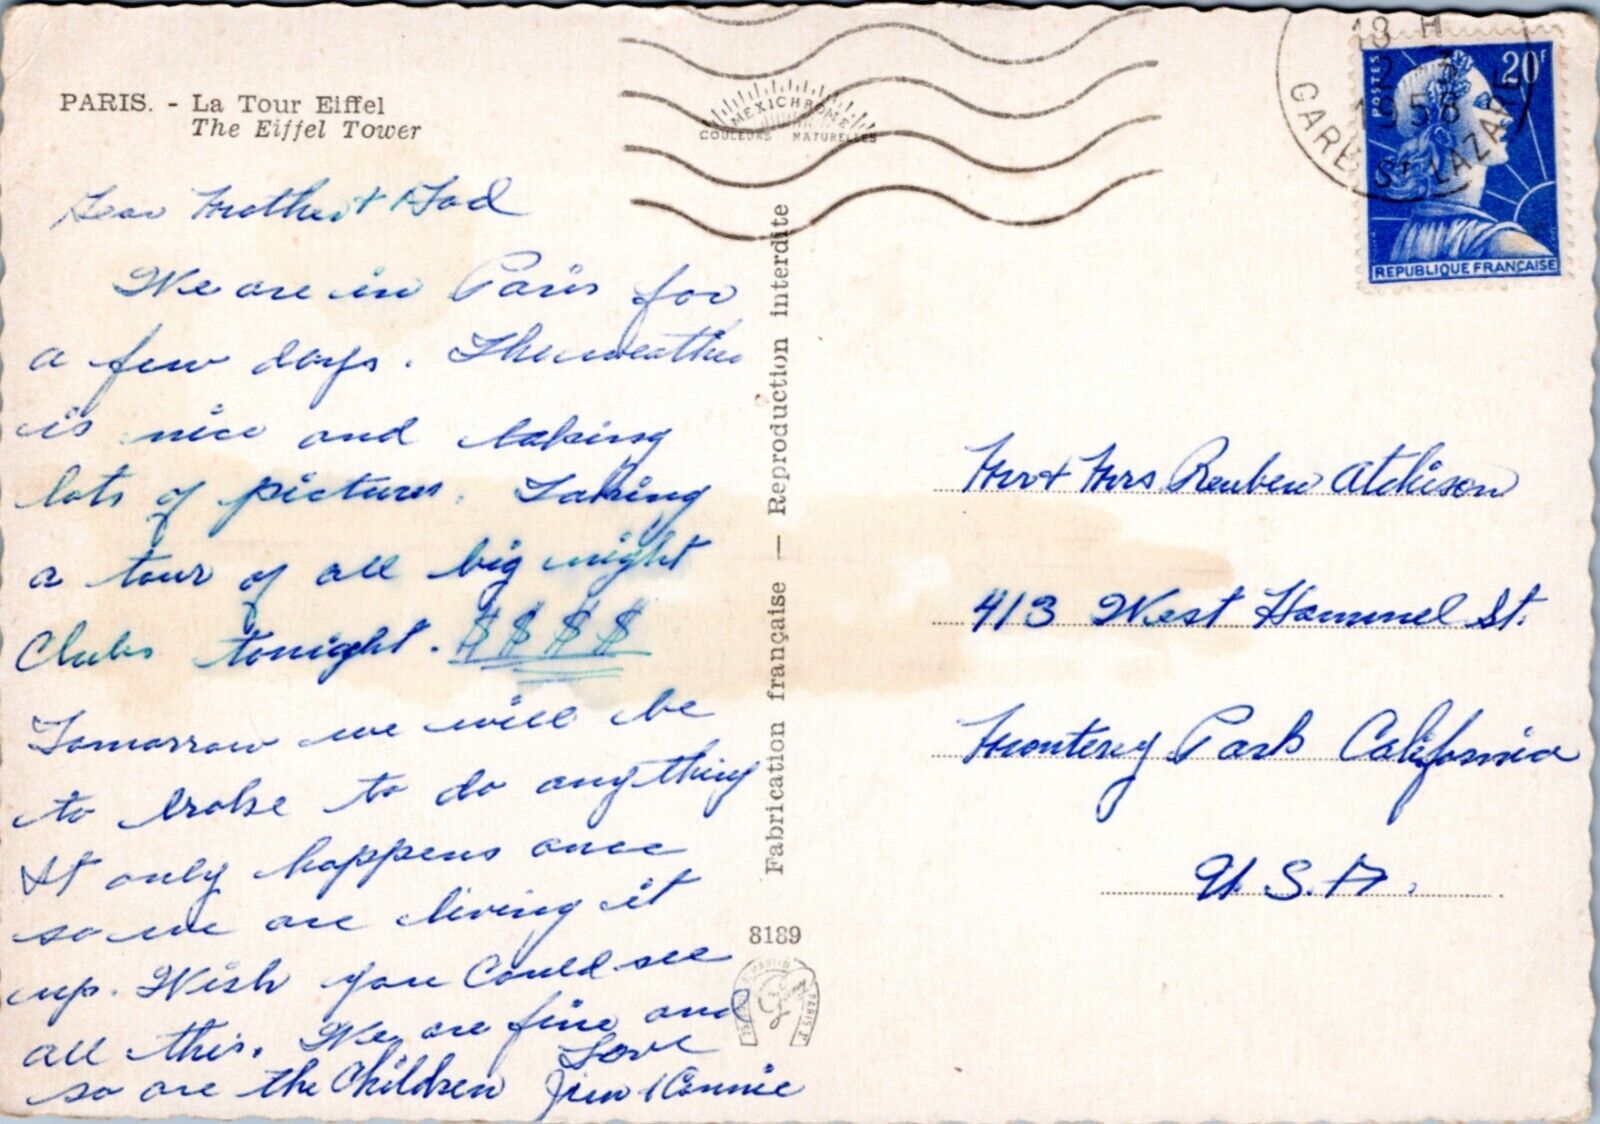 PARIS. - La Tour Eiffel
The Eiffel Tower
MEXICHROME
COULEURS NATURELLES
18 H
2 3
1958
GARE ST LAZARE
POSTES
20F
REPUBLIQUE FRANÇAISE
Dear Mother & Dad
We are in Paris for
a few days. The weather
is nice and taking
lots of pictures. Taking
a tour of all big night
Clubs tonight. $$$$
Tomorrow we will be
to broke to do anything
It only happens once
so we are living it
up. Wish you could see
all this. We are fine and
so are the Children
Love
Jim & Connie
Fabrication française — Reproduction interdite
8189
PARIS
Mr & Mrs Reuben Atchison
413 West Hammel St.
Monterey Park California
U.S.A.